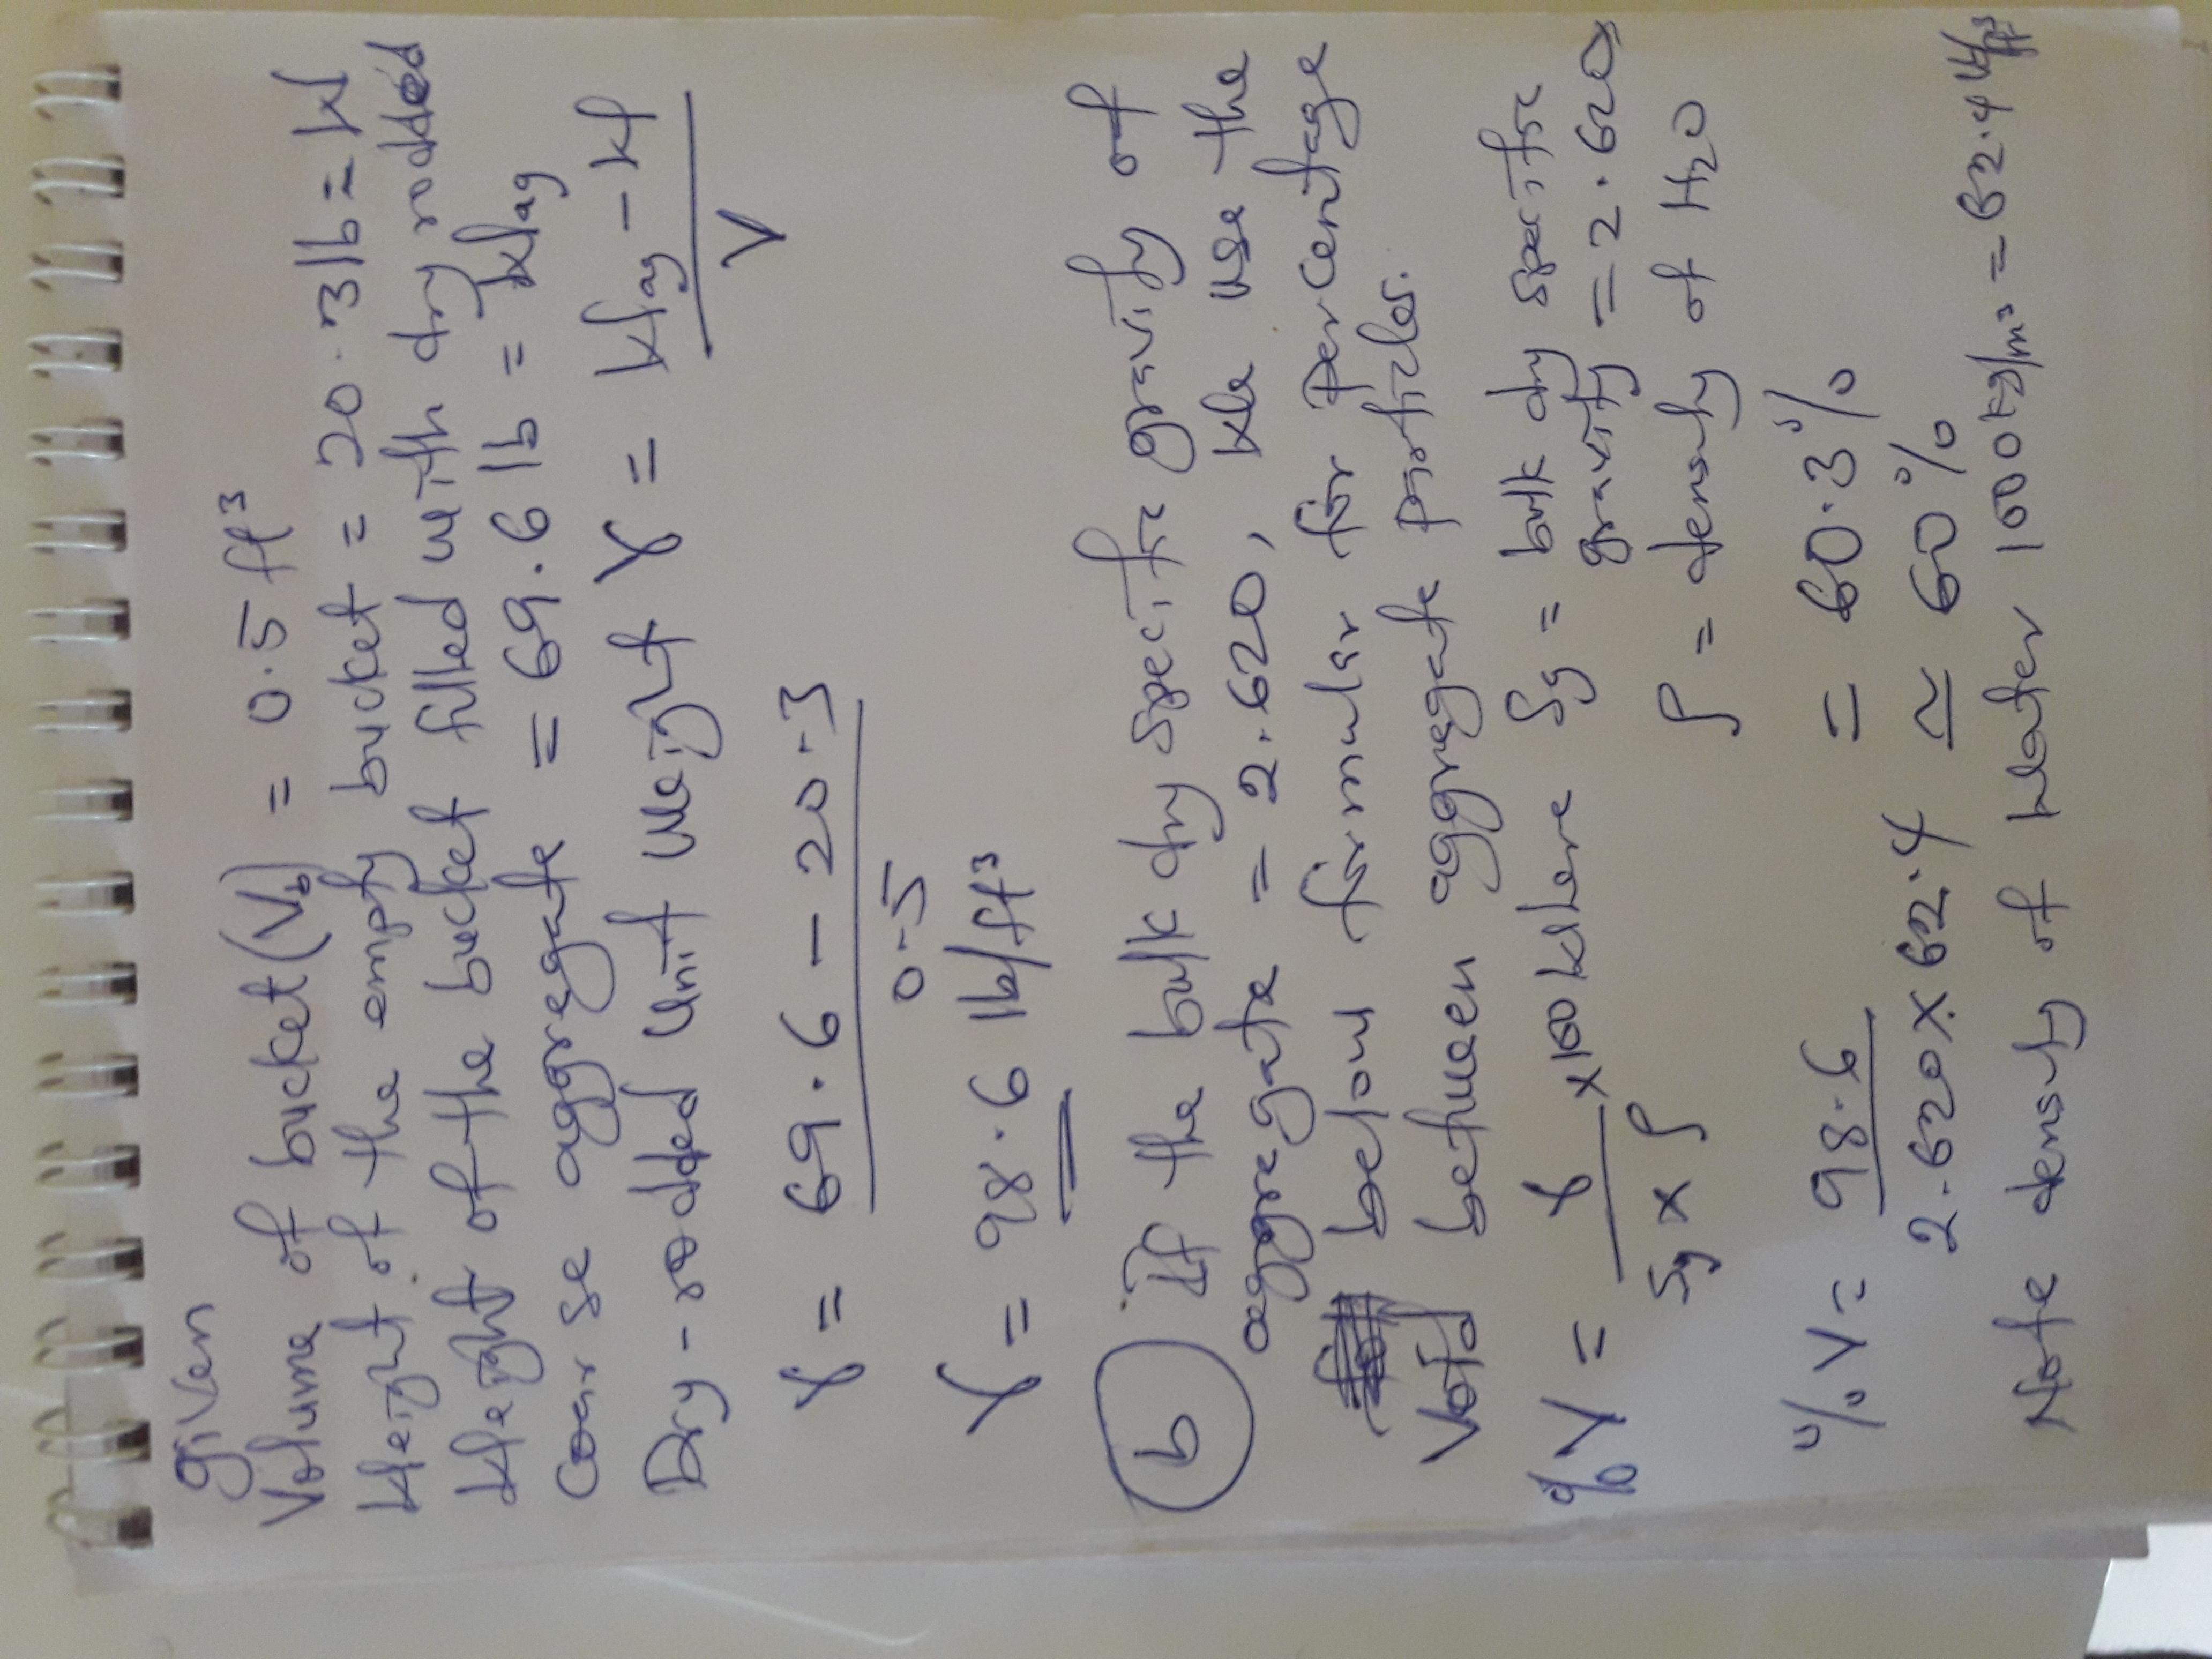 given
Volume of bucket (Vb) = 0.5 ft³
Weight of the empty bucket = 20.3 lb = W
Weight of the bucket filled with dry rodded
coarse aggregate = 69.6 lb = Wag
Dry-rodded unit weight γ = Wag - W / V
γ = 69.6 - 20.3 / 0.5
γ = 98.6 lb/ft³
(b) If the bulk dry specific gravity of
aggregate = 2.620, we use the
below formular for percentage
void between aggregate particles.
%V = γ / Sg x ρ x 100 Where Sg = bulk dry specific
gravity = 2.620
ρ = density of H2O
%V = 98.6 / 2.620 x 62.4 = 60.3%
≃ 60%
Note density of water 1000kg/m³ = 62.4 lb/ft³